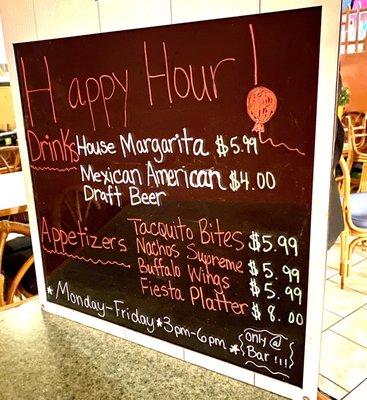 Happy Hour!
Drinks House Margarita $5.99
Mexican American $4.00
Draft Beer
Appetizers Tacquito Bites $5.99
Nachos Supreme $5.99
Buffalo Wings $5.99
Fiesta Platter $8.00
*Monday-Friday*3pm-6pm*
only @
Bar!!!